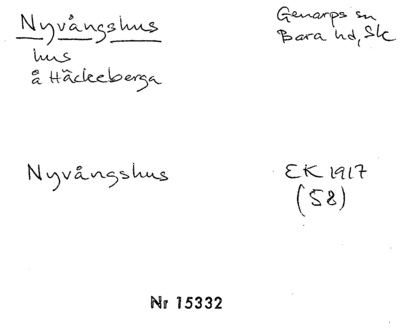 Nyvångshus
Genarps sn
Bara hd, Sk
hus
å Häckeberga
Nyvångshus
EK 1917
(S8)
Nr 15332